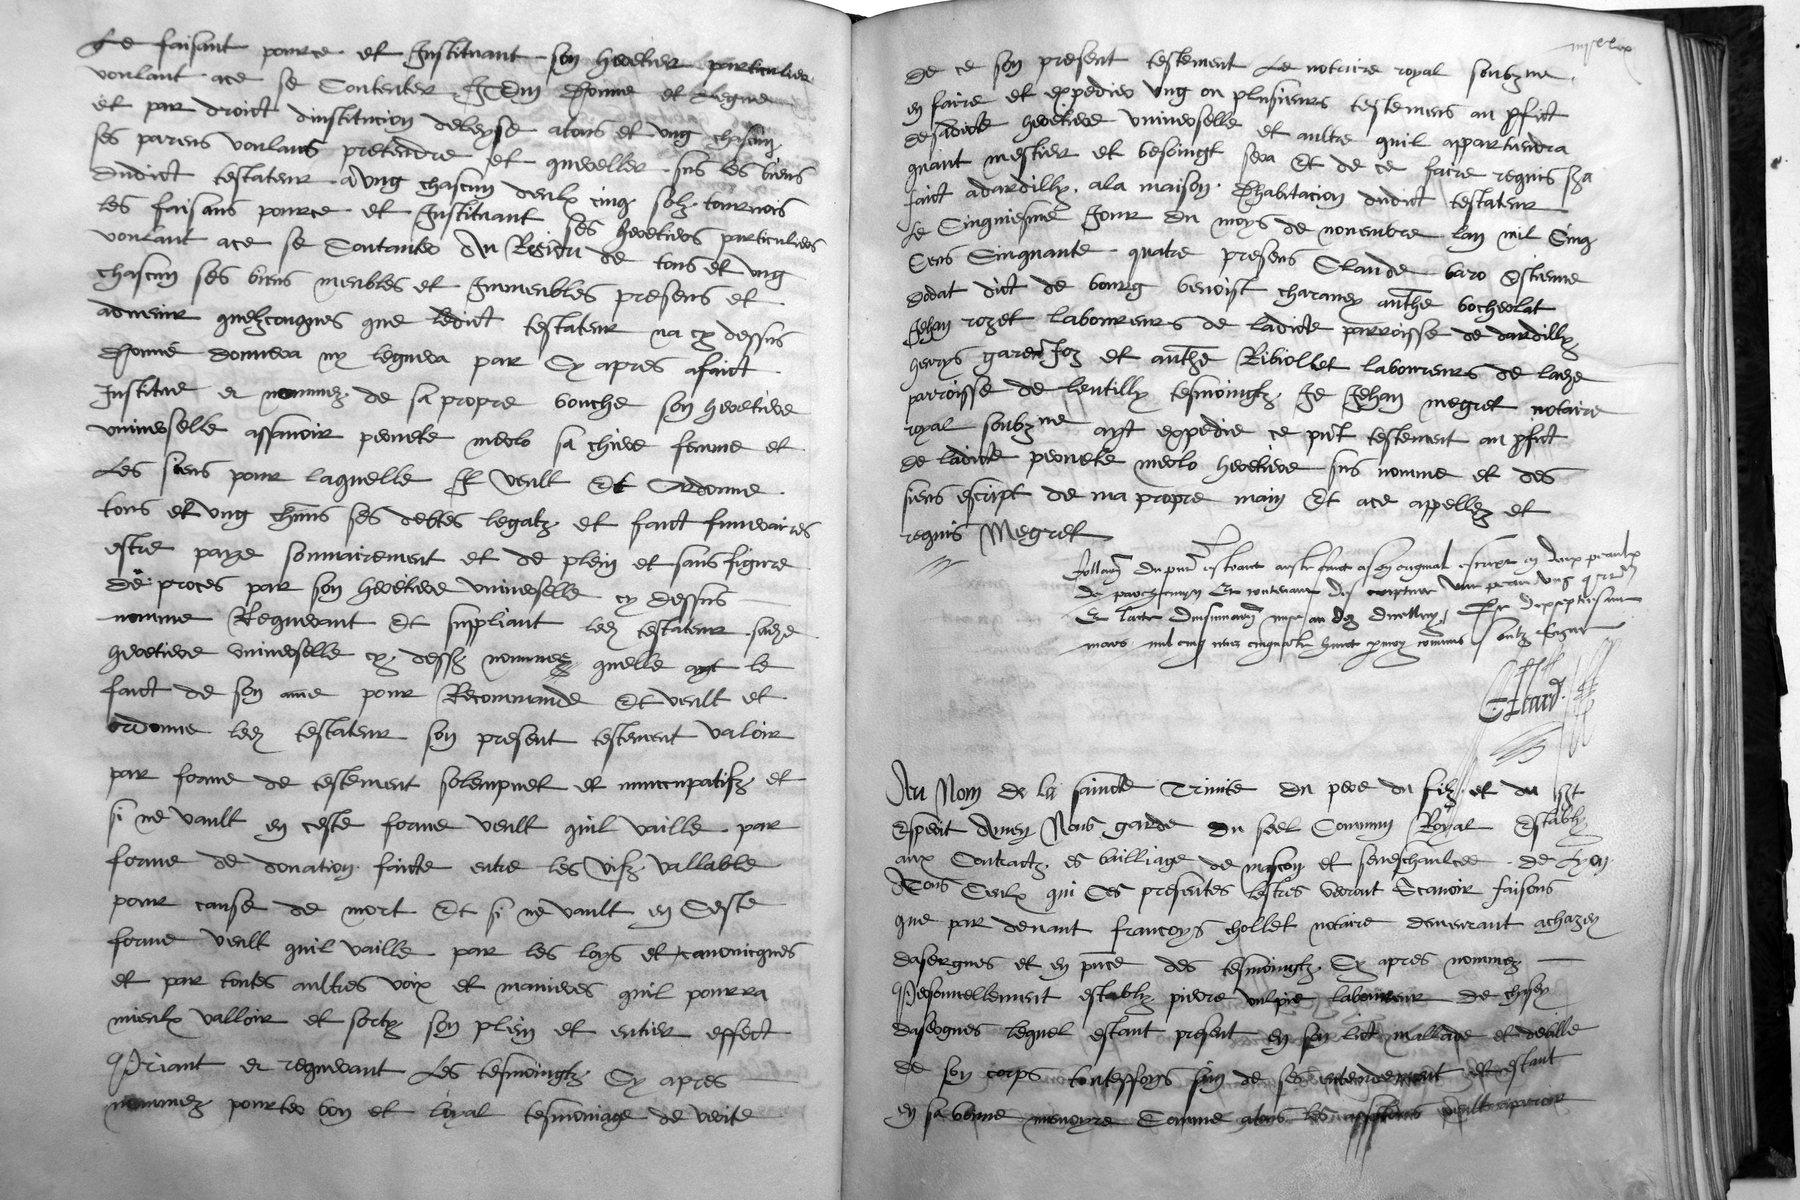 Le faisant pource et Instituant son heretier particulier
voulant ace se Contenter Item donne et legue
et par droict dinstitucion delaysse atous et ung chascun
ses parens voulans pretendre et quereller sus les biens
dudict testateur a ung chascun deulx cinq solz tournois
les faisans pource et Instituant ses heretiers particuliers
voulant ace se Contanter Au Residu de tous et ung
chascun ses biens meubles et Immeubles presens et
advenir quelzconques que ledict testateur na cy dessus
donné donnera ny leguera par Cy apres a faict
Institue et nommez de sa propre bouche son heretiere
universelle assavoir pernete merlo sa chiere femme et
Les siens pour laquelle Il veult Et Ordonne
tous et ung chuns ses debtes legatz et faict funeraires
estre paize sommairement et de plein et sans figure
de proces par son heretiere universelle cy dessus
nomme Requerant Et suppliant led testateur sadte
heretiere universelle cy dess nommez quelle ayt le
faict de son ame pour Recommande Et veult et
ordonne led testateur son present testement valoir
par forme de testement solempnel et nuncupatifz et
si ne vault en ceste forme veult quil vaille par
forme de donation faicte entre les vifz vallable
pour cause de mort Et si ne vault en Ceste
forme veult quil vaille par les loys et canonicques
et par toutes aultres voix et manieres quil pourra
mieulx valloir et sortz son plein et entier effect
Priant et requerant Les tesmoingtz Cy apres
nommez pourter bon et loyal tesmoniage de verite
de ce son present testement Le notaire royal soubzne
en faire et expedier ung ou plusieurs testemens au pfict
desadicte heretiere universelle et aultre quil appartiendra
quant mestier et besoingt sera Et de ce faire requis sza
faict adardilly ala maison dhabitacion dudict testateur
Le Cinquiesme Jour du moys de novembre lan mil Cinq
Cens Cinquante quatre presens Claude baro Estienne
dodat dict de bourg benoist charamex anthe bocherlat
Jehan rozet laboureurs de ladicte parroisse de dardilly
henrys et anthe Ribiollet laboureurs de ladte
parroisse de lentilly tesmoingtz Je Jehan megret notaire
royal soubzne ayt expedie ce pnt testement au pfict
de ladicte pernete merlo heretiere sus nomme et des
siens escript de ma propre main Et ace appellez et
requis Megret
Collaon du pnt testoant aeste faict a son original escript en deux peaulx
de parchemyn Et contenant
Et lacte dinsinuaon mise au doz
mars mil cinq cens cinquante huict
Au Nom de la saincte Trinite Du pere du filz et du sct
Esperit Amen Nous garde du seel Commun Royal Estably
aux Contractz es bailliage de mascon et seneschaulcee de Lyon
A Tous Ceulx qui Ces presentes lestres verront Scavoir faisons
que par devant francoys chollet notaire demeurant achazey
dasergues et en pnce des tesmoingtz Cy apres nommez
Personnellement estably pierre vulpie laboureur de chysy
dasergues lequel estant present en son lict mallade et debille
de son corps touteffoys sin de son entendement et estant
en sa bonne memoyre Comme atous les